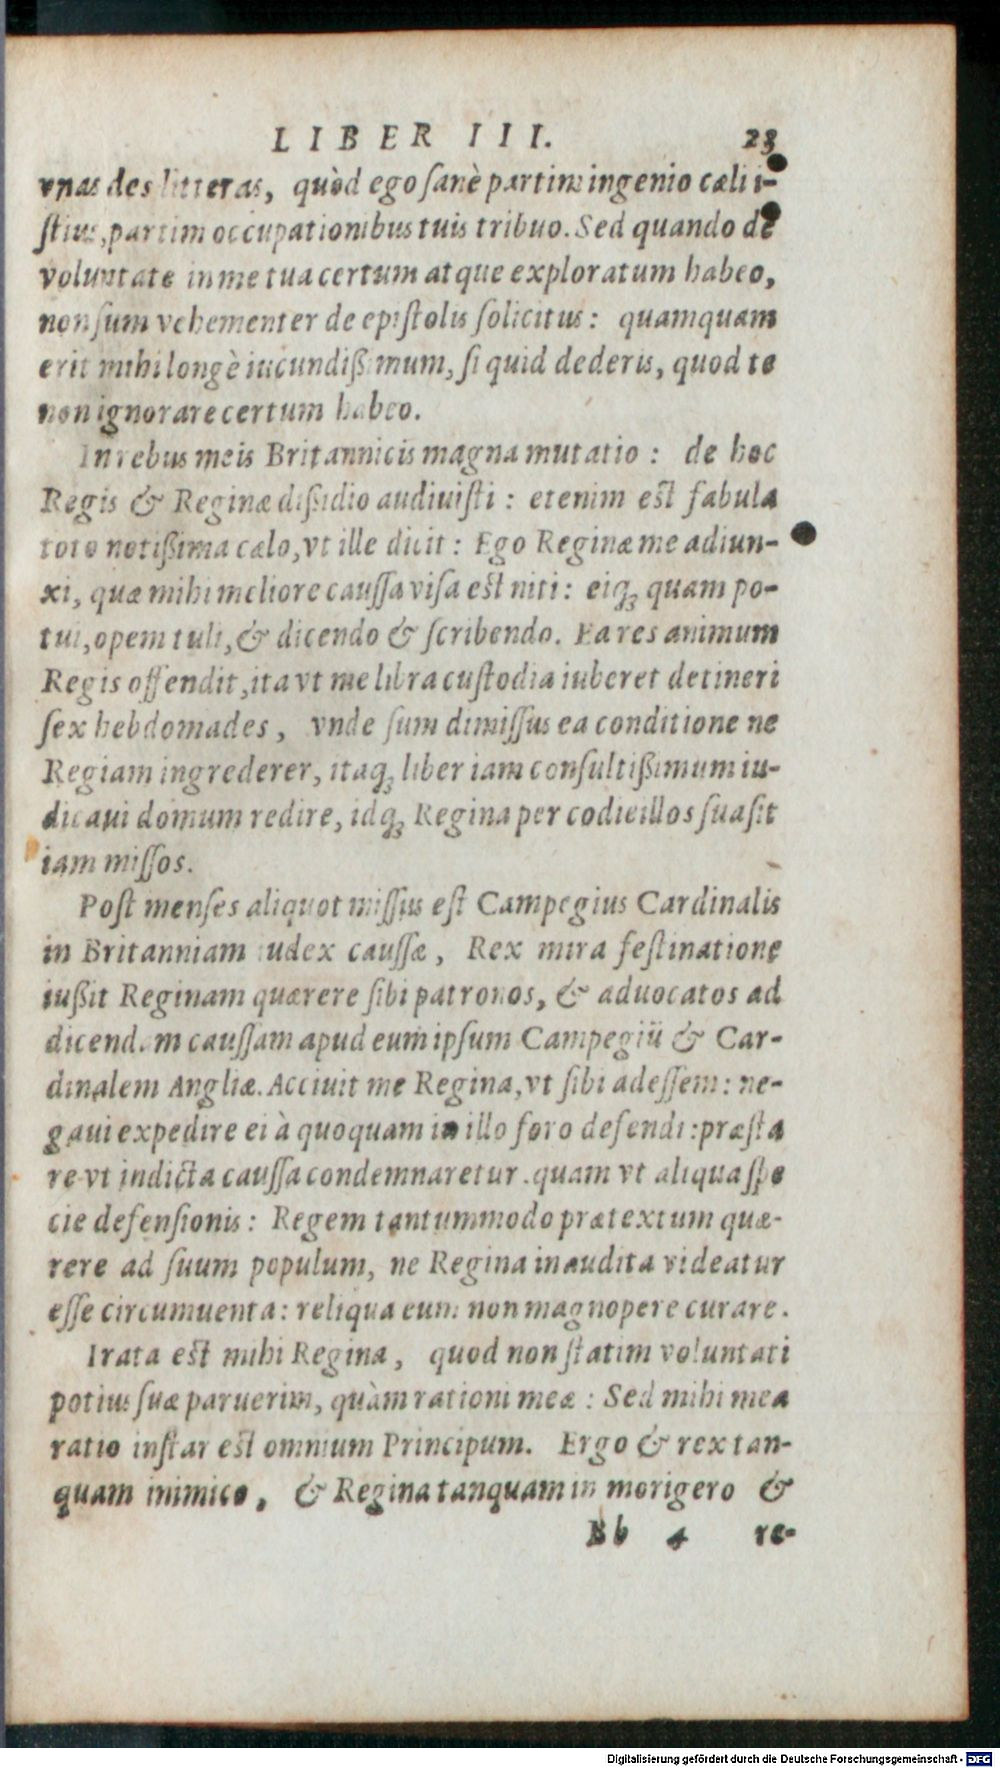 LIBER III. 23
vnas des litteras, quòd ego sanè partim ingenio cæli i-
stius, partim occupationibus tuis tribuo. Sed quando de
voluntate in me tua certum atque exploratum habeo,
non sum vehementer de epistolis solicitus: quamquam
erit mihi longè iucundißimum, si quid dederis, quod te
non ignorare certum habeo.
In rebus meis Britannicis magna mutatio: de hoc
Regis & Reginæ dißidio audiuisti: etenim est fabula
toto notißima cælo, vt ille dicit: Ego Reginæ me adiun-
xi, quæ mihi meliore caussa visa est niti: eiq́; quam po-
tui, opem tuli, & dicendo & scribendo. Ea res animum
Regis offendit, ita vt me libra custodia iuberet detineri
sex hebdomades, vnde sum dimissus ea conditione ne
Regiam ingrederer, itaq; liber iam consultißimum iu-
dicaui domum redire, idq; Regina per codieillos suasit
iam missos.
Post menses aliquot missus est Campegius Cardinalis
in Britanniam iudex caussæ, Rex mira festinatione
iußit Reginam quærere sibi patronos, & aduocatos ad
dicendam caussam apud eum ipsum Campegiū & Car-
dinalem Angliæ. Acciuit me Regina, vt sibi adessem: ne-
gaui expedire ei à quoquam in illo foro defendi: præsta
re vt indicta caussa condemnaretur. quam vt aliqua spe
cie defensionis: Regem tantummodo prætextum quæ-
rere ad suum populum, ne Regina inaudita videatur
esse circumuenta: reliqua eum non magnopere curare.
Irata est mihi Regina, quod non statim voluntati
potius suæ paruerim, quàm rationi meæ: Sed mihi mea
ratio instar est omnium Principum. Ergo & rex tan-
quam inimico, & Regina tanquam in morigero &
Bb 4 re-
Digitalisierung gefördert durch die Deutsche Forschungsgemeinschaft - DFG